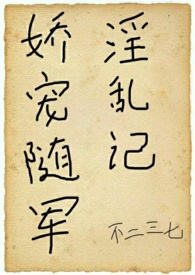 娇宠随军
淫乱记
不二三七